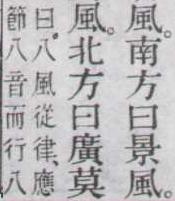 風。南方曰景風。
風。北方曰廣莫
曰八風從律、應
節八音而行八